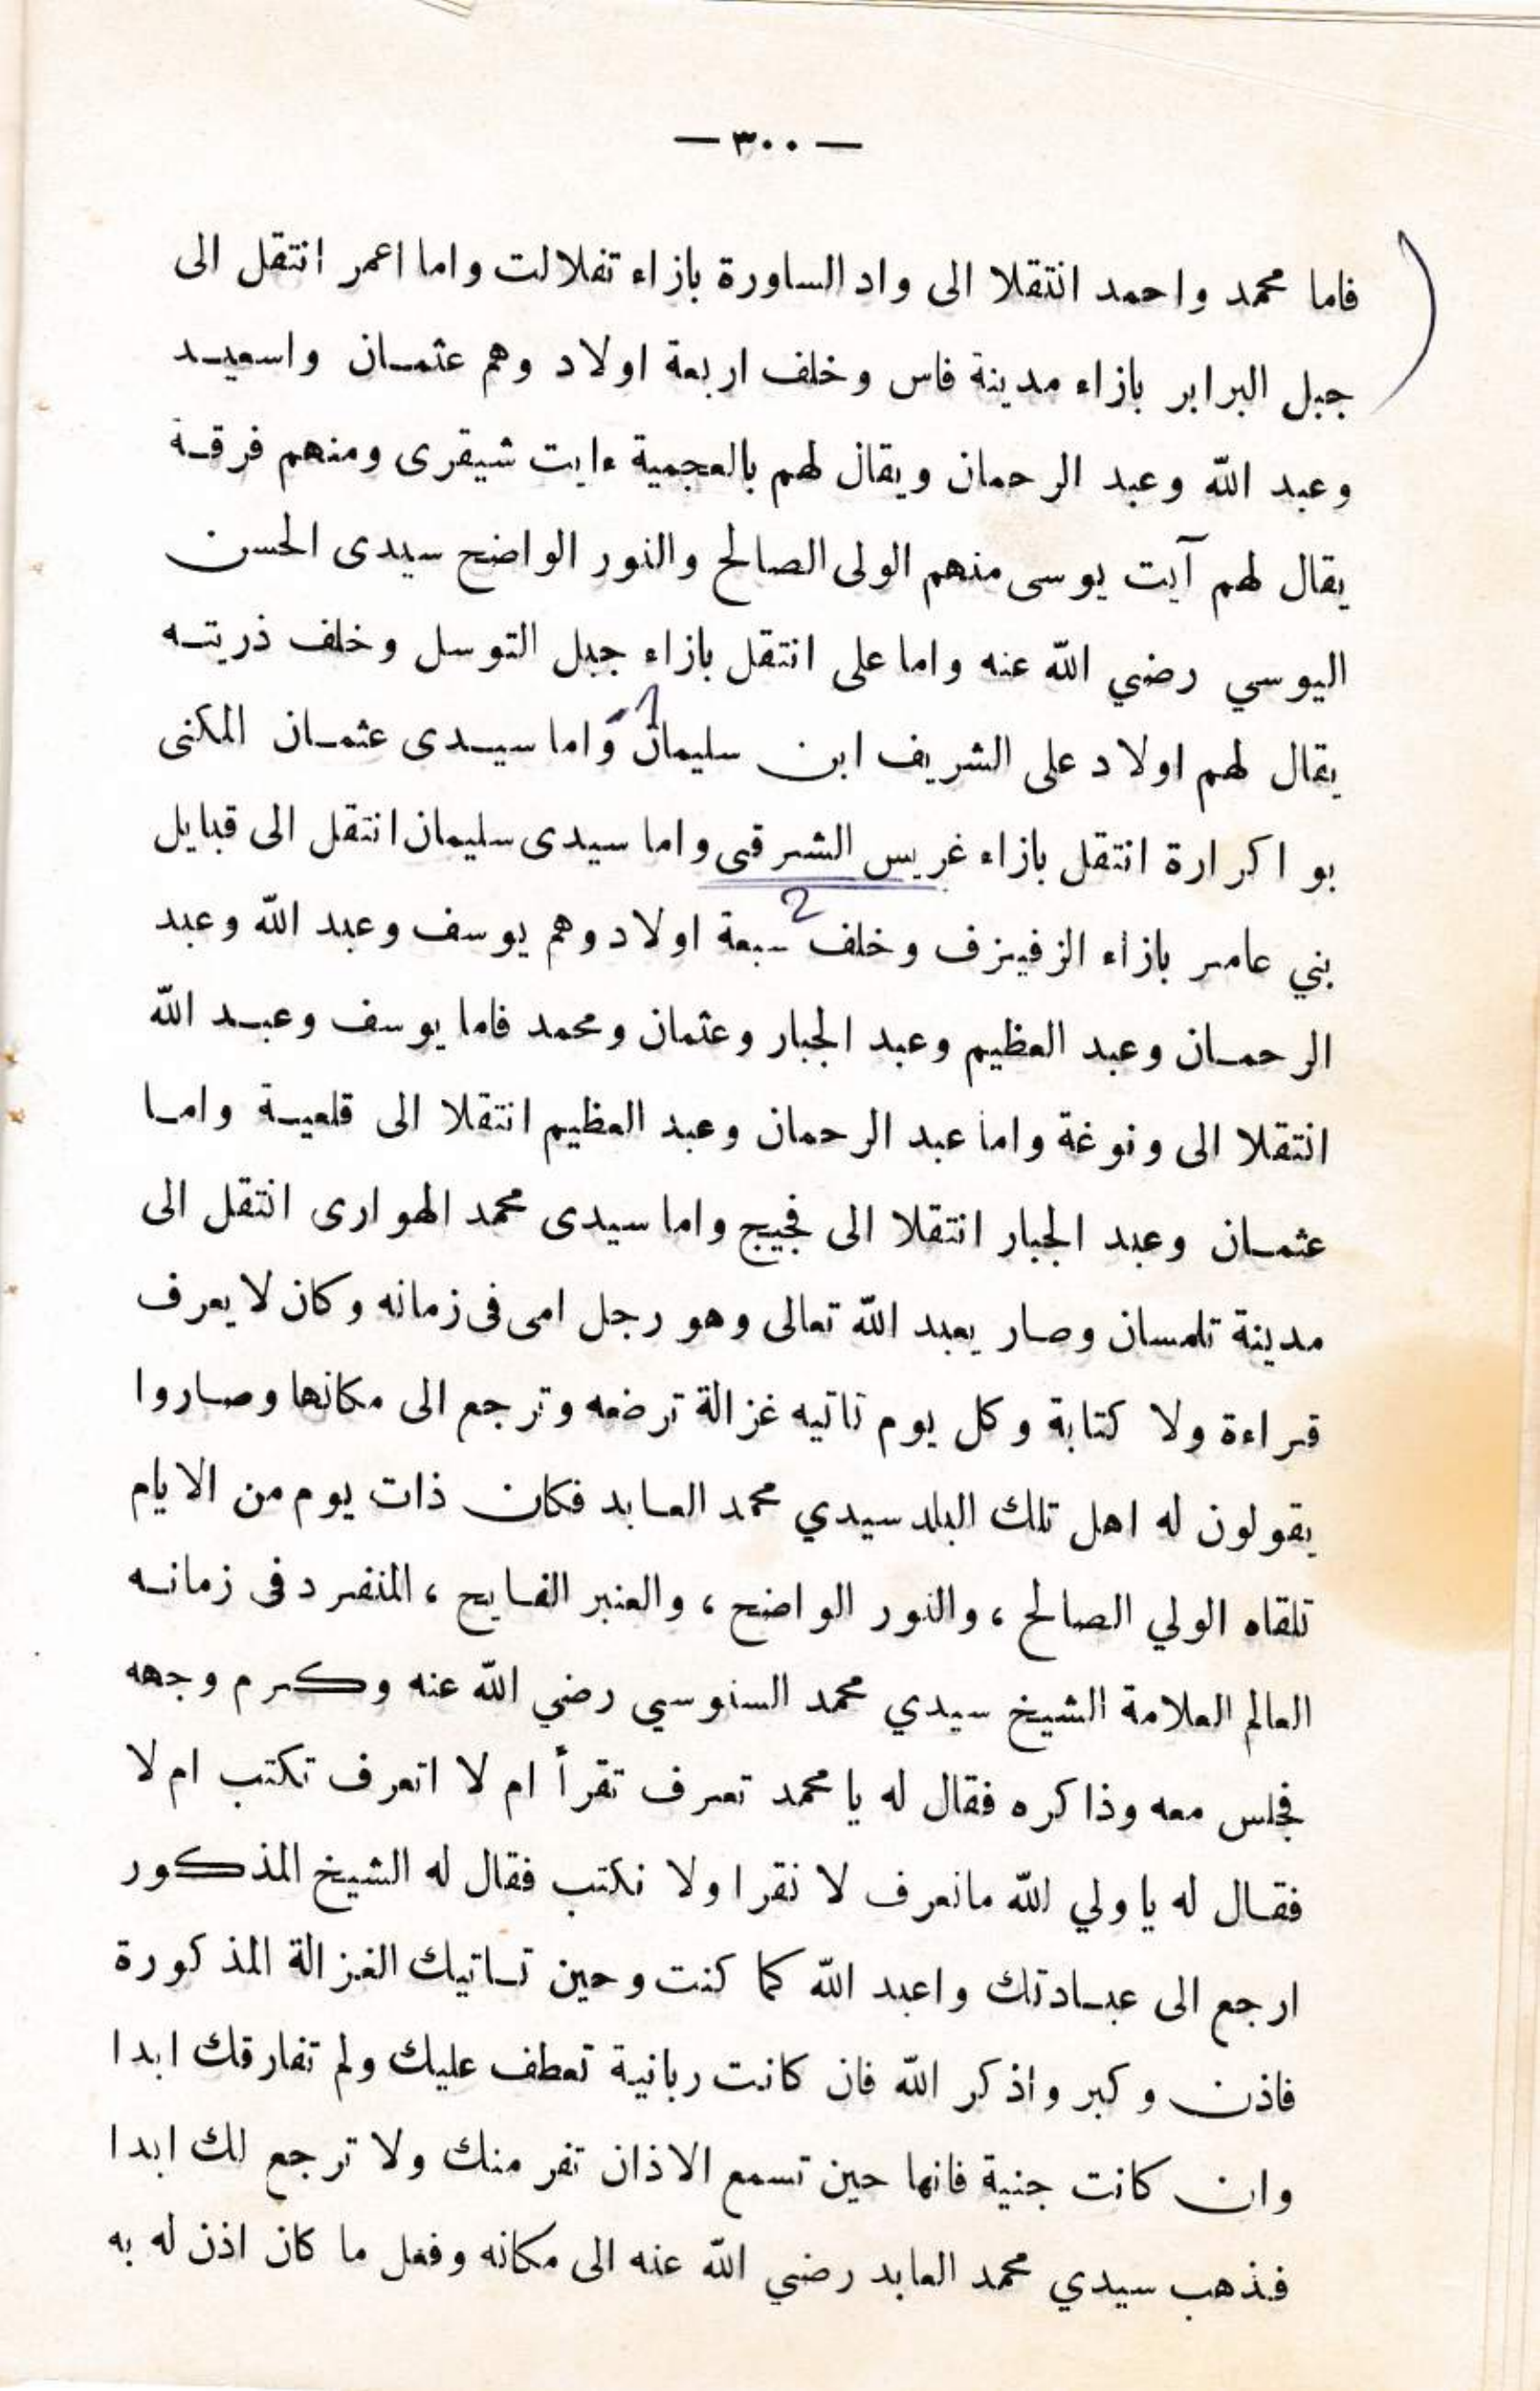 — ٣٠٠ —
فاما محمد واحمد انتقلا الى واد الساورة بازاء تفلالت واما اعمر انتقل الى
جبل البرابر بازاء مدينة فاس وخلف اربعة اولاد وهم عثمان واسعيد
وعبد الله وعبد الرحمان ويقال لهم بالعجمية ءايت شيقرى ومنهم فرقة
يقال لهم آيت يوسى منهم الولى الصالح والنور الواضح سيدى الحسن
اليوسي رضي الله عنه واما على انتقل بازاء جبل التوسل وخلف ذريته
1
يقال لهم اولاد على الشريف ابن سليمان واما سيدى عثمان المكنى
بو اكرارة انتقل بازاء غريس الشرقى واما سيدى سليمان انتقل الى قبايل
2
بني عامر بازاء الزفيزف وخلف سبعة اولاد وهم يوسف وعبد الله وعبد
الرحمان وعبد العظيم وعبد الجبار وعثمان ومحمد فاما يوسف وعبد الله
انتقلا الى ونوغة واما عبد الرحمان وعبد العظيم انتقلا الى قلعية واما
عثمان وعبد الجبار انتقلا الى فجيج واما سيدى محمد الهوارى انتقل الى
مدينة تلمسان وصار يعبد الله تعالى وهو رجل امى فى زمانه وكان لا يعرف
قراءة ولا كتابة وكل يوم تاتيه غزالة ترضعه وترجع الى مكانها وصاروا
يقولون له اهل تلك البلد سيدي محمد العابد فكان ذات يوم من الايام
تلقاه الولي الصالح ، والنور الواضح ، والعنبر الفايح ، المنفرد فى زمانه
العالم العلامة الشيخ سيدي محمد السنوسي رضي الله عنه وكرم وجهه
فجلس معه وذاكره فقال له يا محمد تعرف تقرأ ام لا اتعرف تكتب ام لا
فقال له يا ولي الله مانعرف لا نقرا ولا نكتب فقال له الشيخ المذكور
ارجع الى عبادتك واعبد الله كما كنت وحين تاتيك الغزالة المذكورة
فاذن وكبر واذكر الله فان كانت ربانية تعطف عليك ولم تفارقك ابدا
وان كانت جنية فانها حين تسمع الاذان تفر منك ولا ترجع لك ابدا
فذهب سيدي محمد العابد رضي الله عنه الى مكانه وفعل ما كان اذن له به